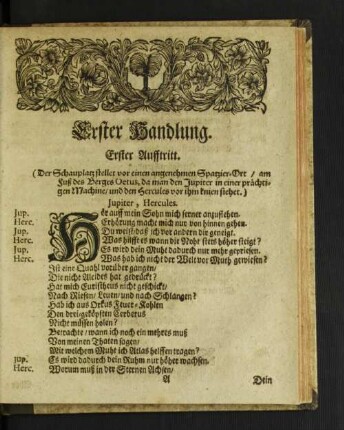 Erster Handlung.
Erster Aufftritt.
(Der Schauplatz stellet vor einen angenehmen Spatzier-Ort / am
Fuß des Berges Oetus, da man den Jupiter in einer prächti-
gen Machine / und den Hercules vor ihm knien siehet.)
Jupiter, Hercules.
Jup. Hör auff mein Sohn mich ferner anzuflehen.
Herc. Erhörung macht mich nur von hinnen gehen.
Jup. Du weist daß ich vor andern die geneigt.
Herc. Was hilfft es wann die Noht stets höher steigt?
Jup. Es wird dein Muht dadurch nur mehr gepriesen.
Herc. Was hab ich nicht der Welt vor Muht gewiesen?
Ist eine Quahl vorüber gangen /
Die nicht Alcides hat gedrückt?
Hat mich Euristheus nicht geschickt /
Nach Riesen / Leuen / und nach Schlangen?
Hab ich aus Orkus Feuer-Pfuhlen
Den dreygeköpfften Cerberus
Nicht müssen holen?
Betrachte / wann ich noch ein mehrers muß
Von meinen Thaten sagen /
Mit welchem Muht ich Atlas helffen tragen?
Jup. Es wird dadurch dein Ruhm nur höher wachsen.
Herc. Warum muß in der Sternen Achsen /
A Dein